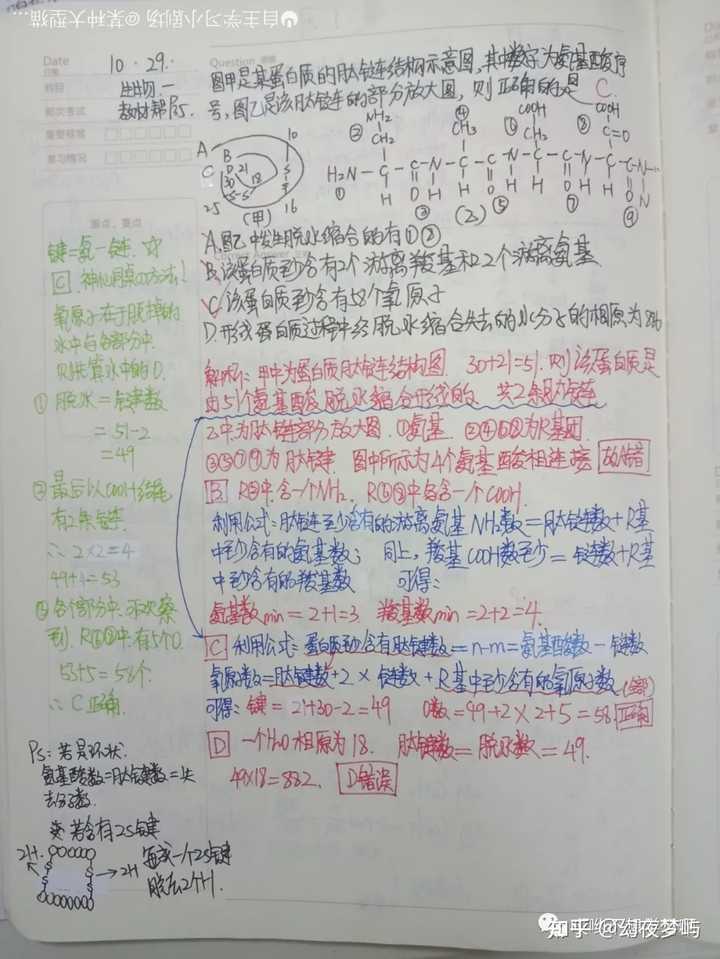 自主学习小剧场@某种大型猫...
Date
日期
10.29.
Question
科目
生物.一
教材帮P5.
图甲是某蛋白质的肽链结构示意图,其中数字为氨基酸序
号,图乙是该肽链的部分放大图,则正确的是 C.
A
B
C
D
30 21 18
-S-S-
10
S
S
25
16
(甲)
② NH₂
CH₂
④ CH₃
⑥ COOH
CH₂
⑧ COOH
C=O
H₂N-C-C-N-C-C-N-C-C-N-C-C-N-
① H O H H O H H O H H O H
③ ⑤ ⑦ ⑨
(乙)
A.图乙中发生脱水缩合的有①②
B.该蛋白质至少含有2个游离羧基和2个游离氨基
C.该蛋白质至少含有58个氧原子
D.形成蛋白质过程中经脱水缩合失去的水分子的相原为
解析:甲中为蛋白质肽链结构图 30+21=51.则该蛋白质是
由51个氨基酸脱水缩合形成的 共2条肽链
乙中.为肽链部分放大图.①氨基. ②④⑥⑧为R基团.
③⑤⑦⑨为肽键. 图中所示为4个氨基酸相连接 故A错
B R②中.含一个NH₂. R⑥⑧中各含一个COOH.
利用公式:肽链至少含有的游离氨基NH₂数=肽链数+R基
中至少含有的氨基数; 同上,羧基COOH数至少=链数+R基
中至少含有的羧基数 可得:
氨基数min=2+1=3. 羧基数min=2+2=4.
C 利用公式:蛋白质至少含有肽键数=n-m=氨基酸数-链数
氧原子数=肽键数+2×链数+R基中至少含有的氧原子数
可得:键=21+30-2=49 O数=49+2×2+5=58. 正确
D 一个H₂O相原为18. 肽键数=脱水数=49.
49×18=882. D错误
难点、重点
键=氨-链.☆
C 神仙同桌の方法!
氧原子在于脱掉的
水中与各部分中.
则先算水中的O.
① 脱水=键数
=51-2
=49
② 最后以COOH结尾
有2条链.
∴2×2=4
49+4=53
③ 各个部分中.
到.R⑥⑧中.有5个O.
53+5=58个.
∴C正确.
Ps:若是环状.
氨基酸数=肽键数=失
去水分子数.
若含有2S键
2H
S S
S S
→2H
每成一个2S键
脱去2个H.
知乎 @幻夜梦屿